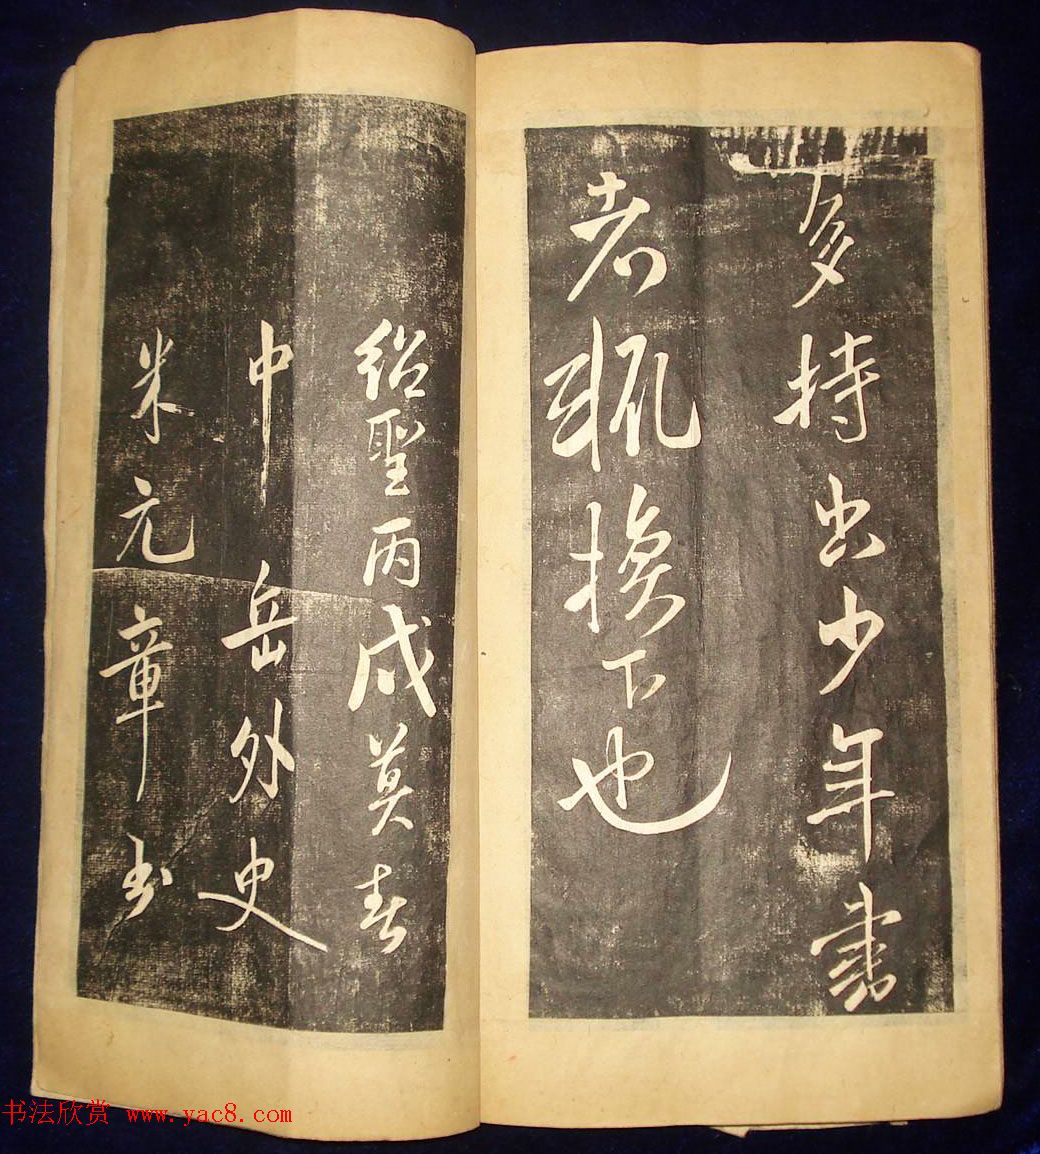 多持出少年書
者輒換下也
紹聖丙戌莫春
中岳外史
米元章書
书法欣赏 www.yac8.com